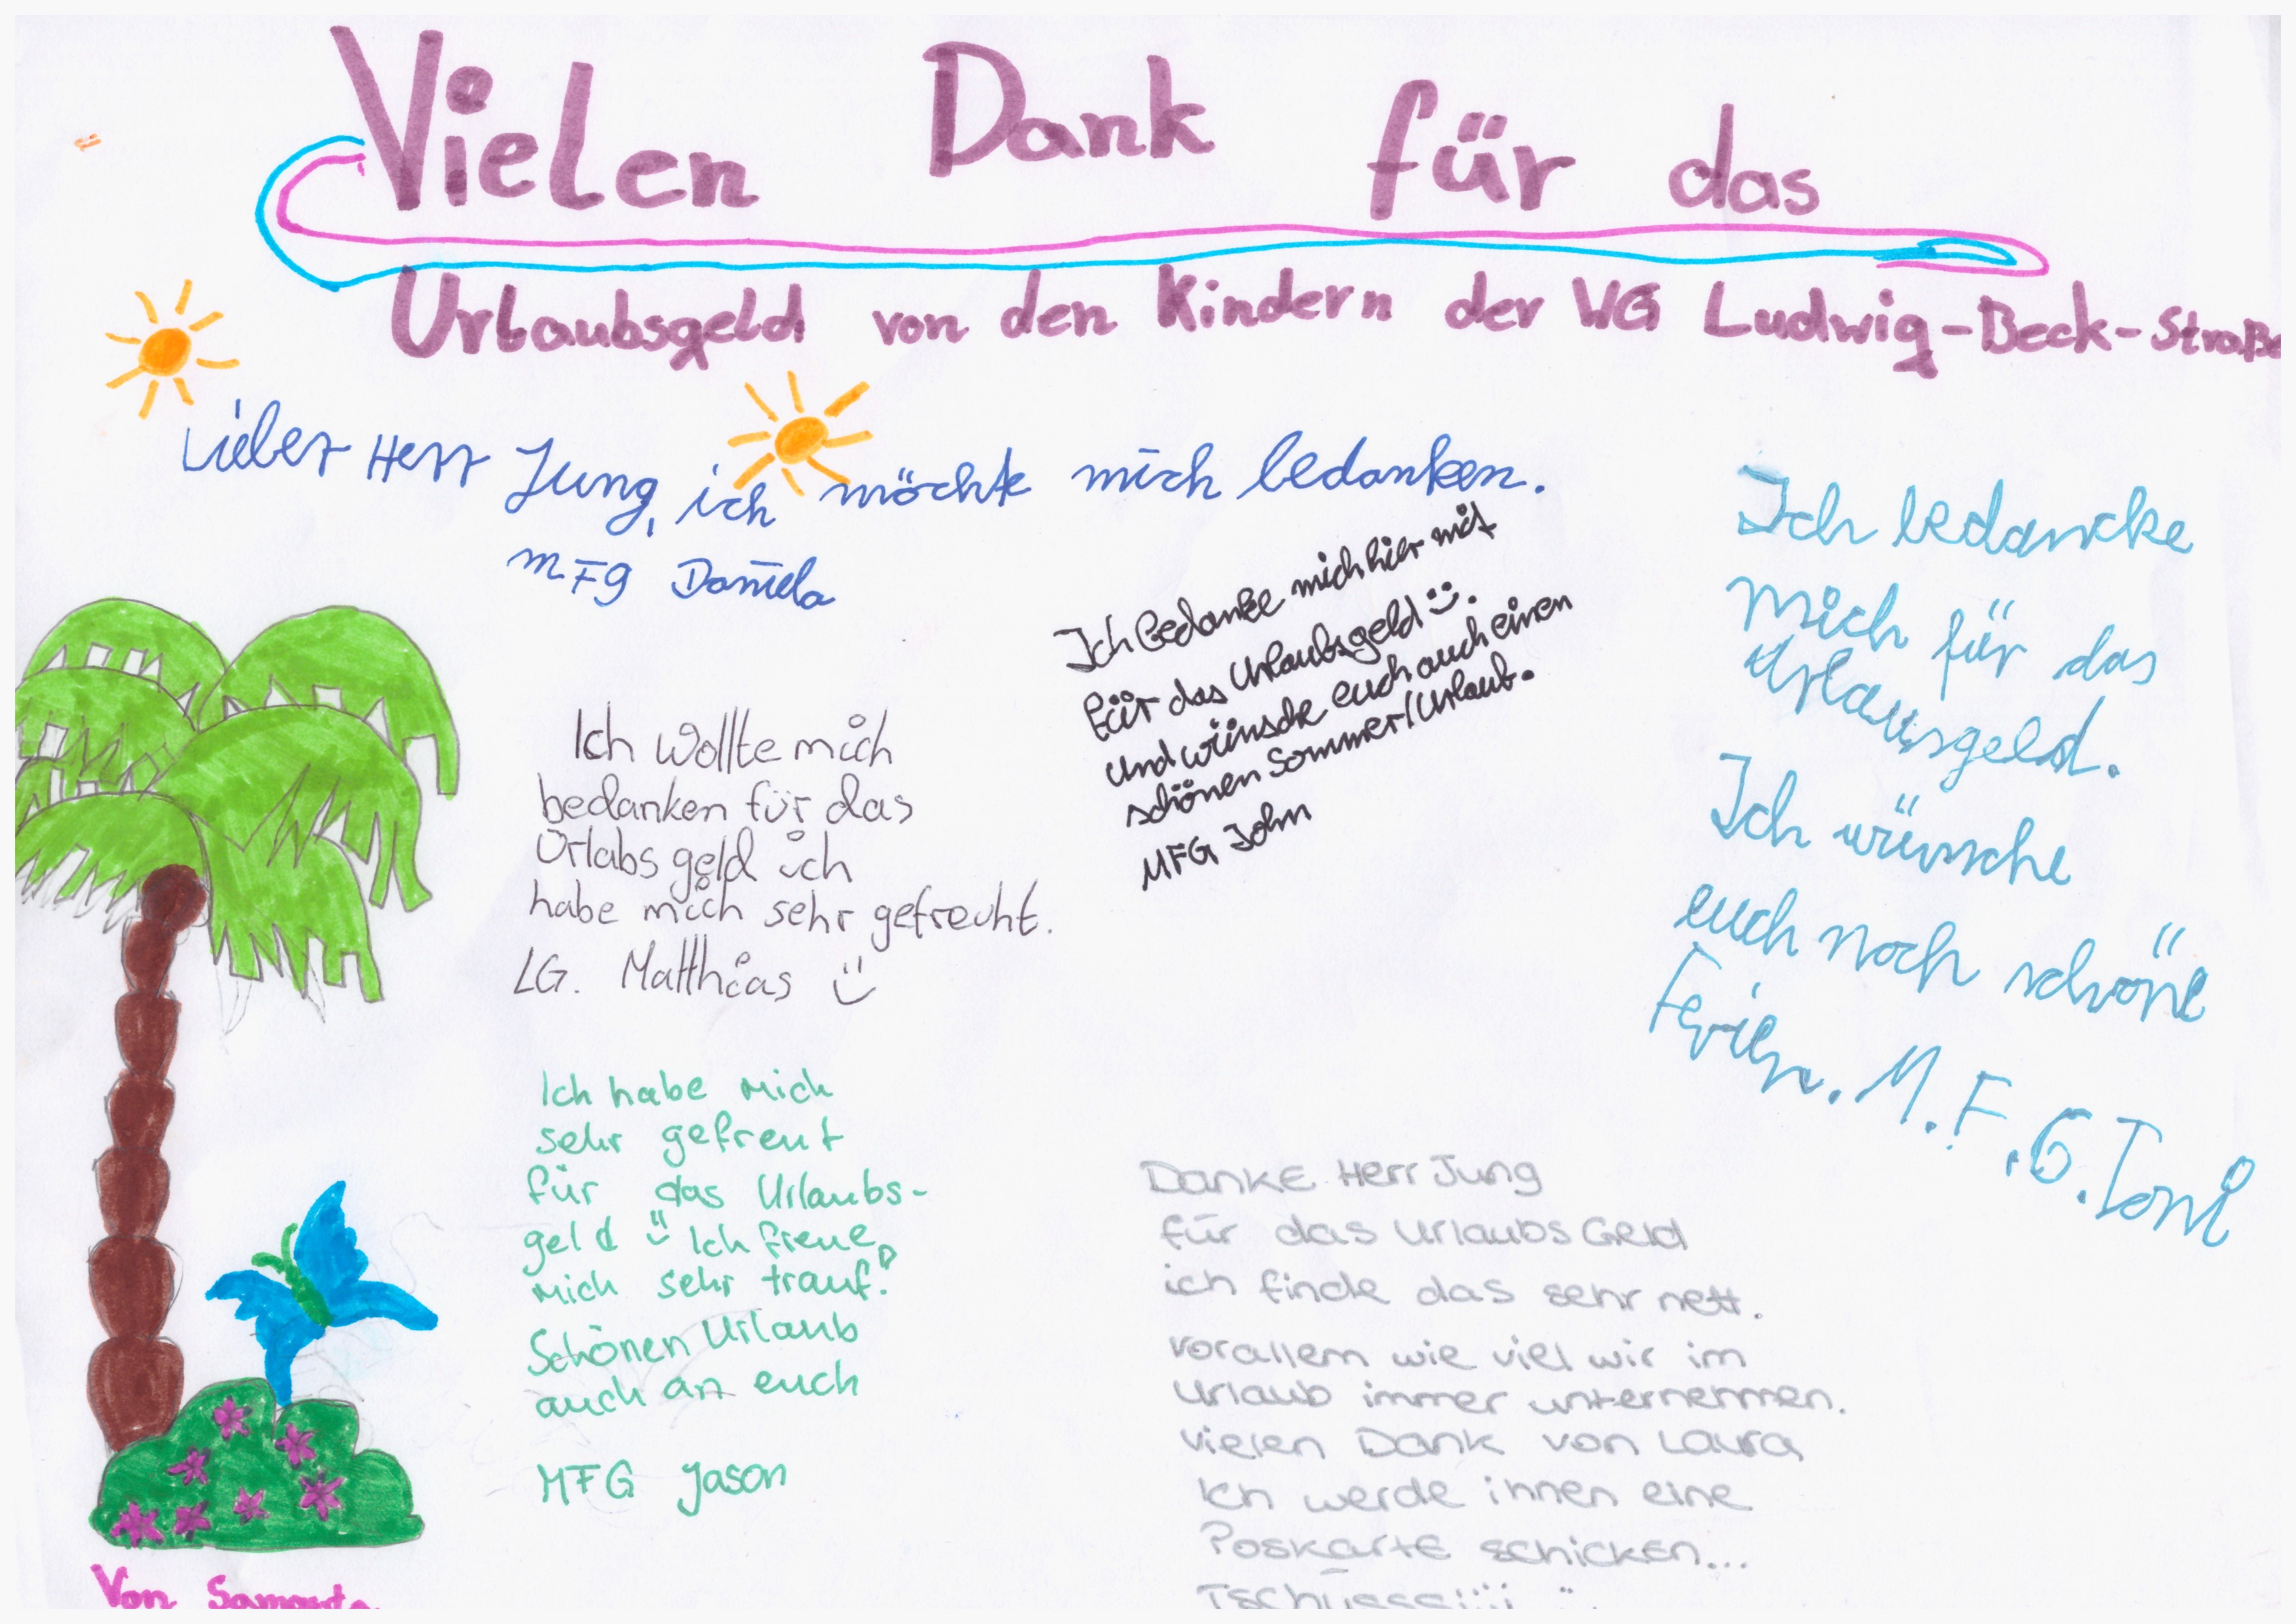 Vielen Dank für das
Urlaubsgeld von den Kindern der WG Ludwig-Beck-Straße
Lieber Herr Jung, ich möchte mich bedanken.
MFG Daniela
Ich Bedanke mich hier mit
für das Urlaubsgeld :).
und wünsche euch auch einen
schönen Sommer/Urlaub.
MFG John
Ich bedancke
mich für das
Urlausgeld.
Ich wünsche
euch noch schöne
Ferien. M.F.G. Toni
Ich wollte mich
bedanken für das
Orlabs geld ich
habe mich sehr gefreuht.
LG. Matthias :)
Ich habe mich
sehr gefreut
für das Urlaubs-
geld :) Ich freue
mich sehr trauf!
Schönen Urlaub
auch an euch
MFG Jason
Danke Herr Jung
für das Urlaubs Geld
ich finde das sehr nett.
vorallem wie viel wir im
Urlaub immer unternehmen.
vielen Dank von Laura
Ich werde ihnen eine
Poskarte schicken...
Von